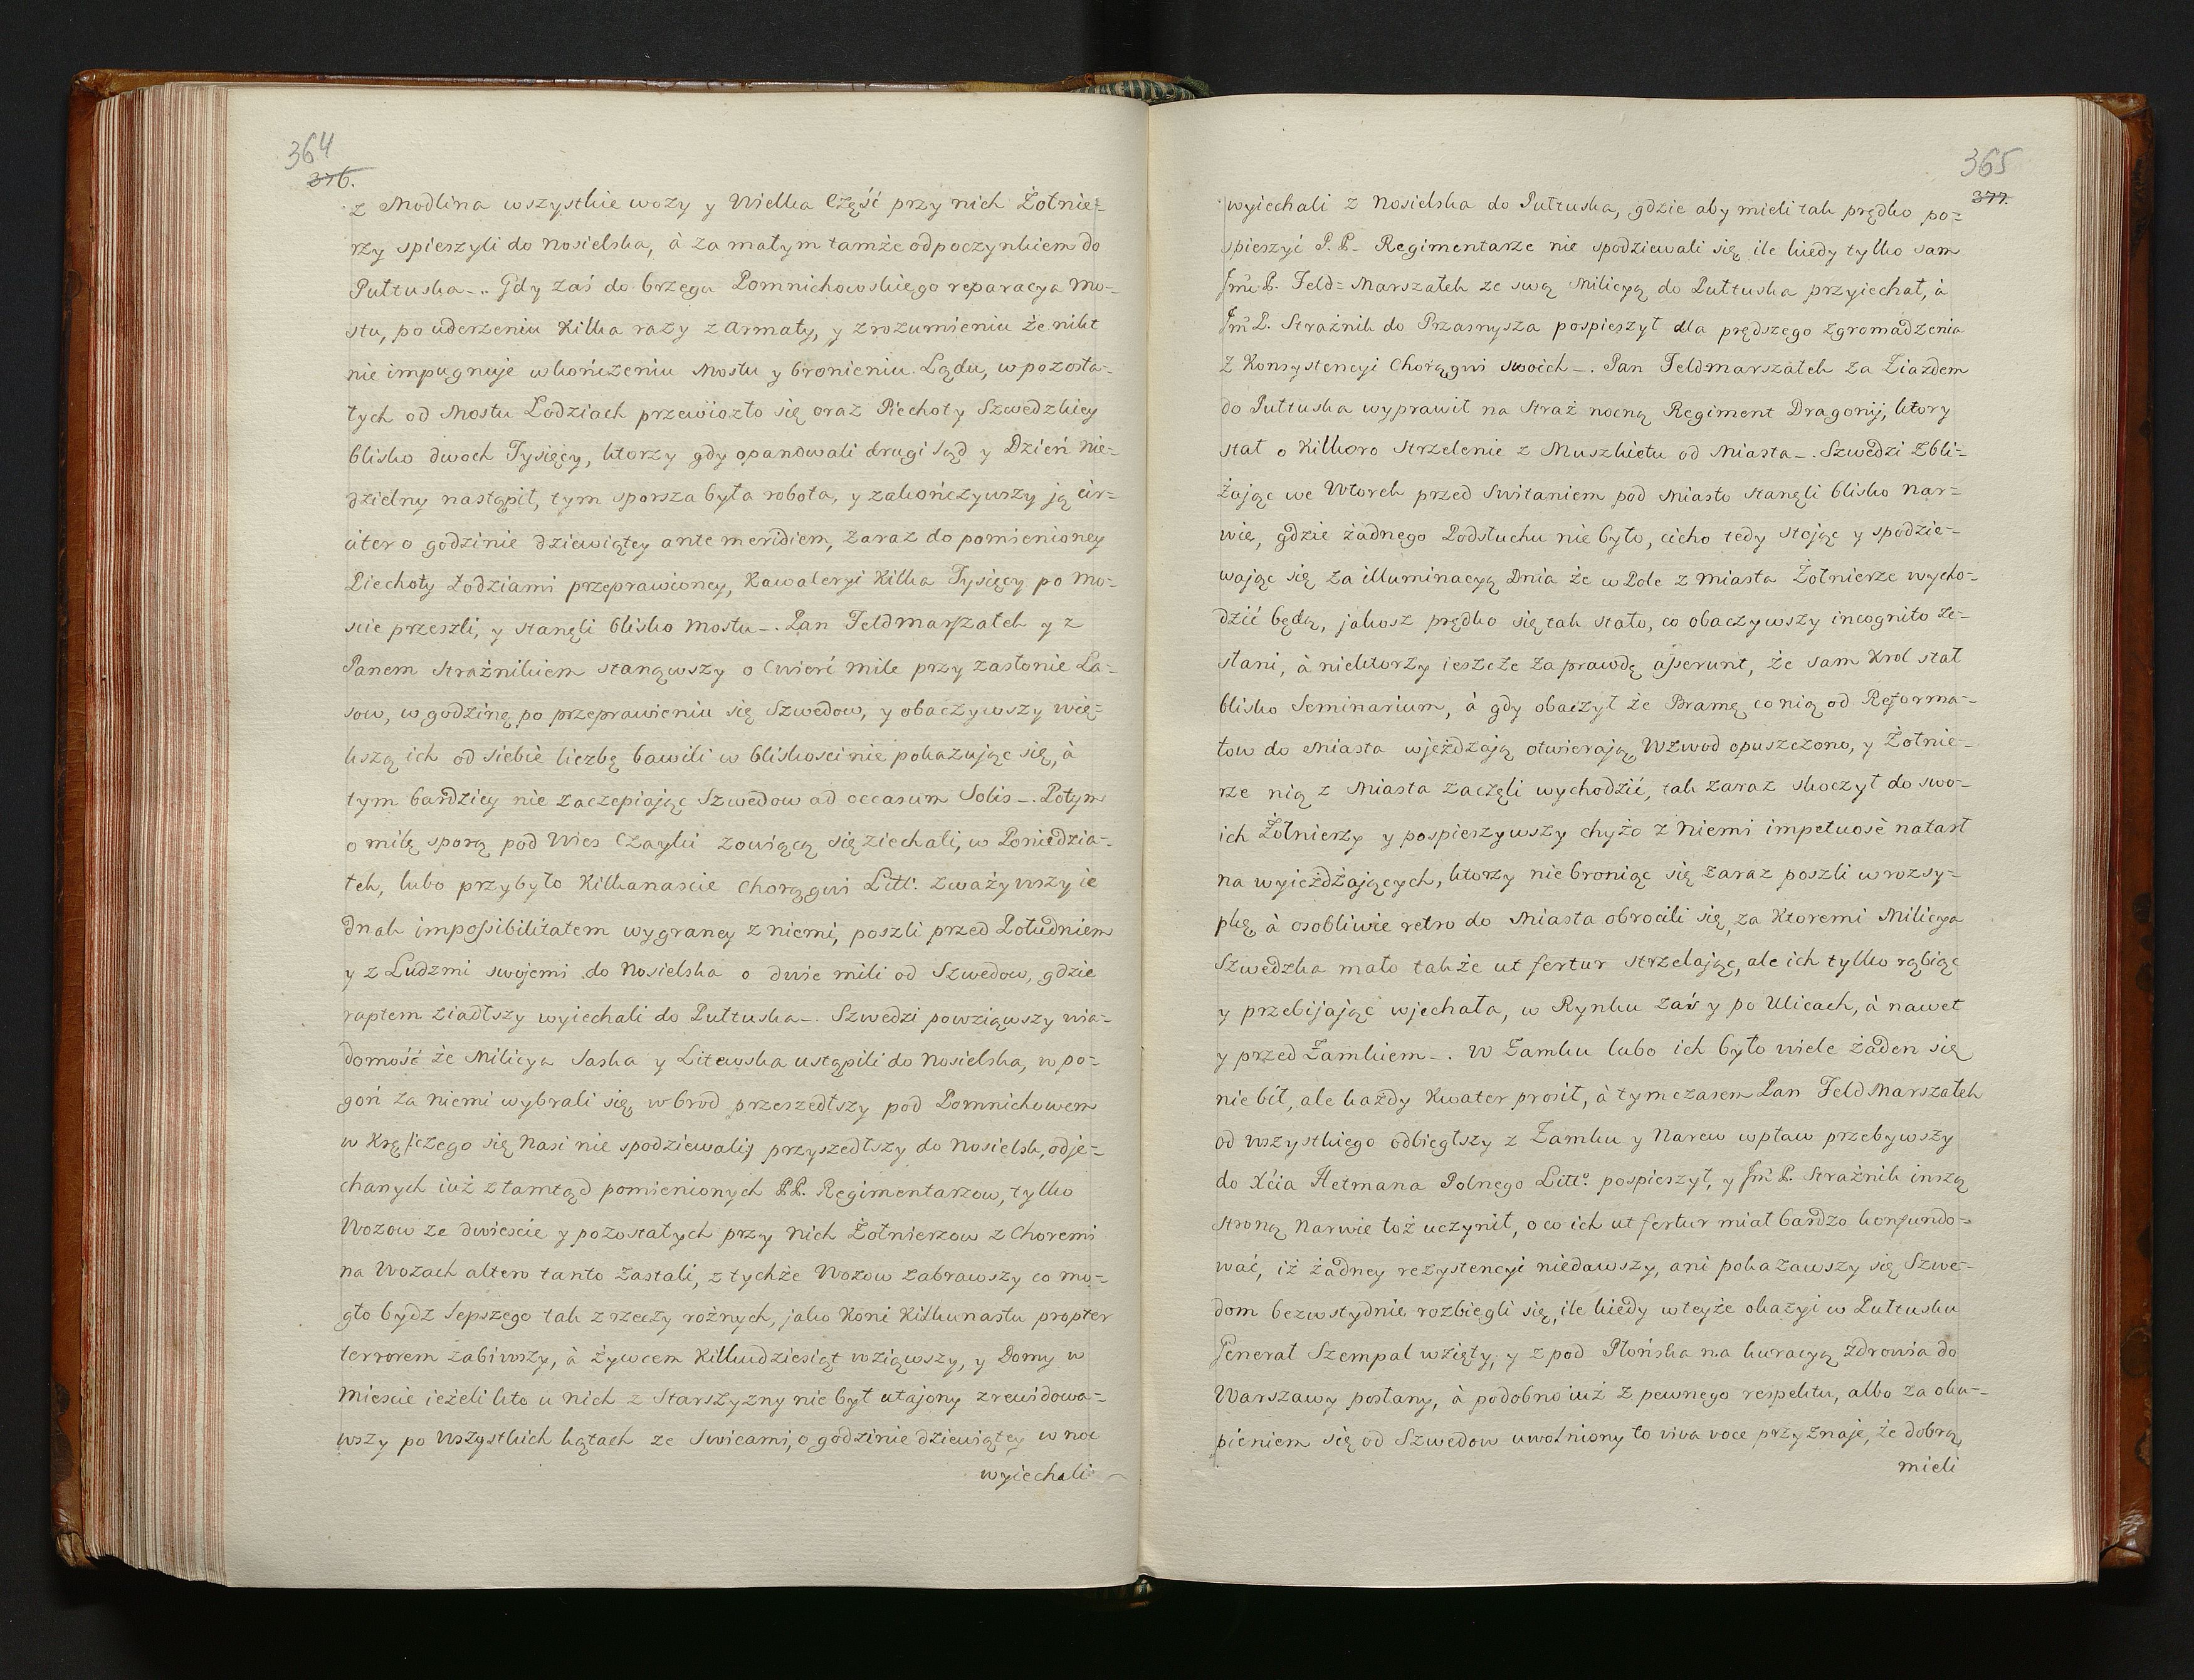 364
376.
z Modlina wszystkie wozy y Wielka Część przy nich Żołnie=
rzy spieszyli do Nosielska, à za małym tamże odpoczynkiem do
Pułtuska_.. Gdy zaś do brzegu Pomnichowskiego reparacya Mo-
stu, po uderzeniu Kilka razy z Armaty, y zrozumieniu że nikt
nie impugnuje w kończeniu Mostu y bronieniu Lądu, w pozosta-
łych od Mostu Łodziach przewiozło się oraz Piechoty Szwedzkiey
blisko dwoch Tysięcy, ktorzy gdy opanowali drugi Ląd y Dzień Nie-
dzielny nastąpił, tym sporsza była robota, y zakończywszy ją cir-
citer o godzinie dziewiątey ante meridiem, zaraz do pomienioney
Piechoty Łodziami przeprawioney, Kawaleryi Kilka Tysięcy po Mo-
scie przeszli, y stanęli blisko Mostu_. Pan Feldmarszałek y z
Panem Strażnikiem stanąwszy o Cwierć mile przy zasłonie La-
sow, w godzinę po przeprawieniu się Szwedow, y obaczywszy wię-
kszą ich od siebie liczbę bawili w bliskosci nie pokazując się, à
tym bardziey nie zaczepiając Szwedow ad occasum Solis_. Potym
o milę sporą pod Wies Czayki zowiącą się ziechali, w Poniedzia-
łek, lubo przybyło Kilkanascie Chorągwi Littt. zważywszy ie
dnak impossibilitatem wygraney z niemi, poszli przed Południem
y z Ludzmi swojemi do Nosielska o dwie mili od Szwedow, gdzie
raptem ziadłszy wyiechali do Pułtuska_. Szwedzi powziąwszy wia-
domość że Milicya Saska y Litewska ustąpili do Nosielska, w po-
goń za niemi wybrali się, w bród przeszedłszy pod Pomnichowem
w Krę /:czego się Nasi nie spodziewali:/ przyszedłszy do Nosielsk, odje-
chanych iuż ztamtąd pomienionych P.P. Regimentarzow, tylko
Wozow ze dwiescie y pozostałych przy nich Żołnierzow z Choremi
na Wozach altero tanto zastali, z tychże Wozow zabrawszy co mo-
gło bydz lepszego tak z rzeczy rożnych, jako Koni Kilkunastu propter
terrorem zabiwszy, à żywcem Kilkudziesiąt wziąwszy, y Domy w
Miescie ieżeli kto u nich z Starszyzny nie był utajony zrewidowa-
wszy po wszystkich kątach ze Swicami, o godzinie dziewiątey w noc
wyiechali
365
377.
wyiechali z Nosielska do Pułtuska, gdzie aby mieli tak prędko po=
spieszyć P.P. Regimentarze nie spodziewali się, ile kiedy tylko sam
Jmć P. Feld=Marszałek ze swą Milicyą do Pułtuska przyiechał, à
Jmć P. Strażnik do Przasnysza pospieszył dla prędszego zgromadzenia
z Konsystencyi Chorągwi swoich_. Pan Feldmarszałek za Ziazdem
do Pułtuska wyprawił na Straż nocną Regiment Dragonij, ktory
stał o Kilkoro Strzelenie z Muszkietu od Miasta_. Szwedzi zbli-
żając we Wtorek przed Switaniem pod Miasto stanęli blisko Nar=
wie, gdzie żadnego Podsłuchu nie było, cicho tedy stojąc y spodzie-
wając się za illuminacyą Dnia że w Pole z Miasta Żołnierze wycho-
dzić będą, jakosz prędko się tak stało, co obaczywszy incognito ze-
słani, à niektorzy ieszcze za prawdę asserunt, że sam Krol stał
blisko Seminarium, à gdy obaczył że Bramę co nią od Reforma-
tow do Miasta wjeżdzają otwierają, Wzwod opuszczono, y Żołnie-
rze nią z Miasta zaczęli wychodzić, tak zaraz skoczył do swo-
ich Żołnierzy y pospieszywszy chyżo z niemi impetuosè natarł
na wyieżdżających, ktorzy nie broniąc się zaraz poszli w rozsy-
pkę, à osobliwie retro do Miasta obrocili się, za Ktoremi Milicya
Szwedzka mało także ut fertur strzelając, ale ich tylko rąbiąc
y przebijając wjechała, w Rynku zaś y po Ulicach, à nawet
y przed Zamkiem_. W Zamku lubo ich było wiele żaden się
nie bił, ale każdy Kwater prosił, à tymczasem Pan FeldMarszałek
od wszystkiego odbiegłszy z Zamku y Narew wpław przebywszy
do Xcia Hetmana Polnego Litto. pospieszył, y Jmć P. Strażnik inszą
stroną Narwie toż uczynił, o co ich ut fertur miał bardzo konfundo=
wać, iż żadney rezystencyi niedawszy, ani pokazawszy się Szwe-
dom bezwstydnie rozbiegli się, ile kiedy w teyże okazyi w Pułtusku
Generał Szempal wzięty, y z pod Płońska na kuracyą zdrowia do
Warszawy posłany, à podobno iuż z pewnego respektu, albo za oku-
pieniem się od Szwedow uwolniony to viva voce przyznaje, że dobrą
mieli